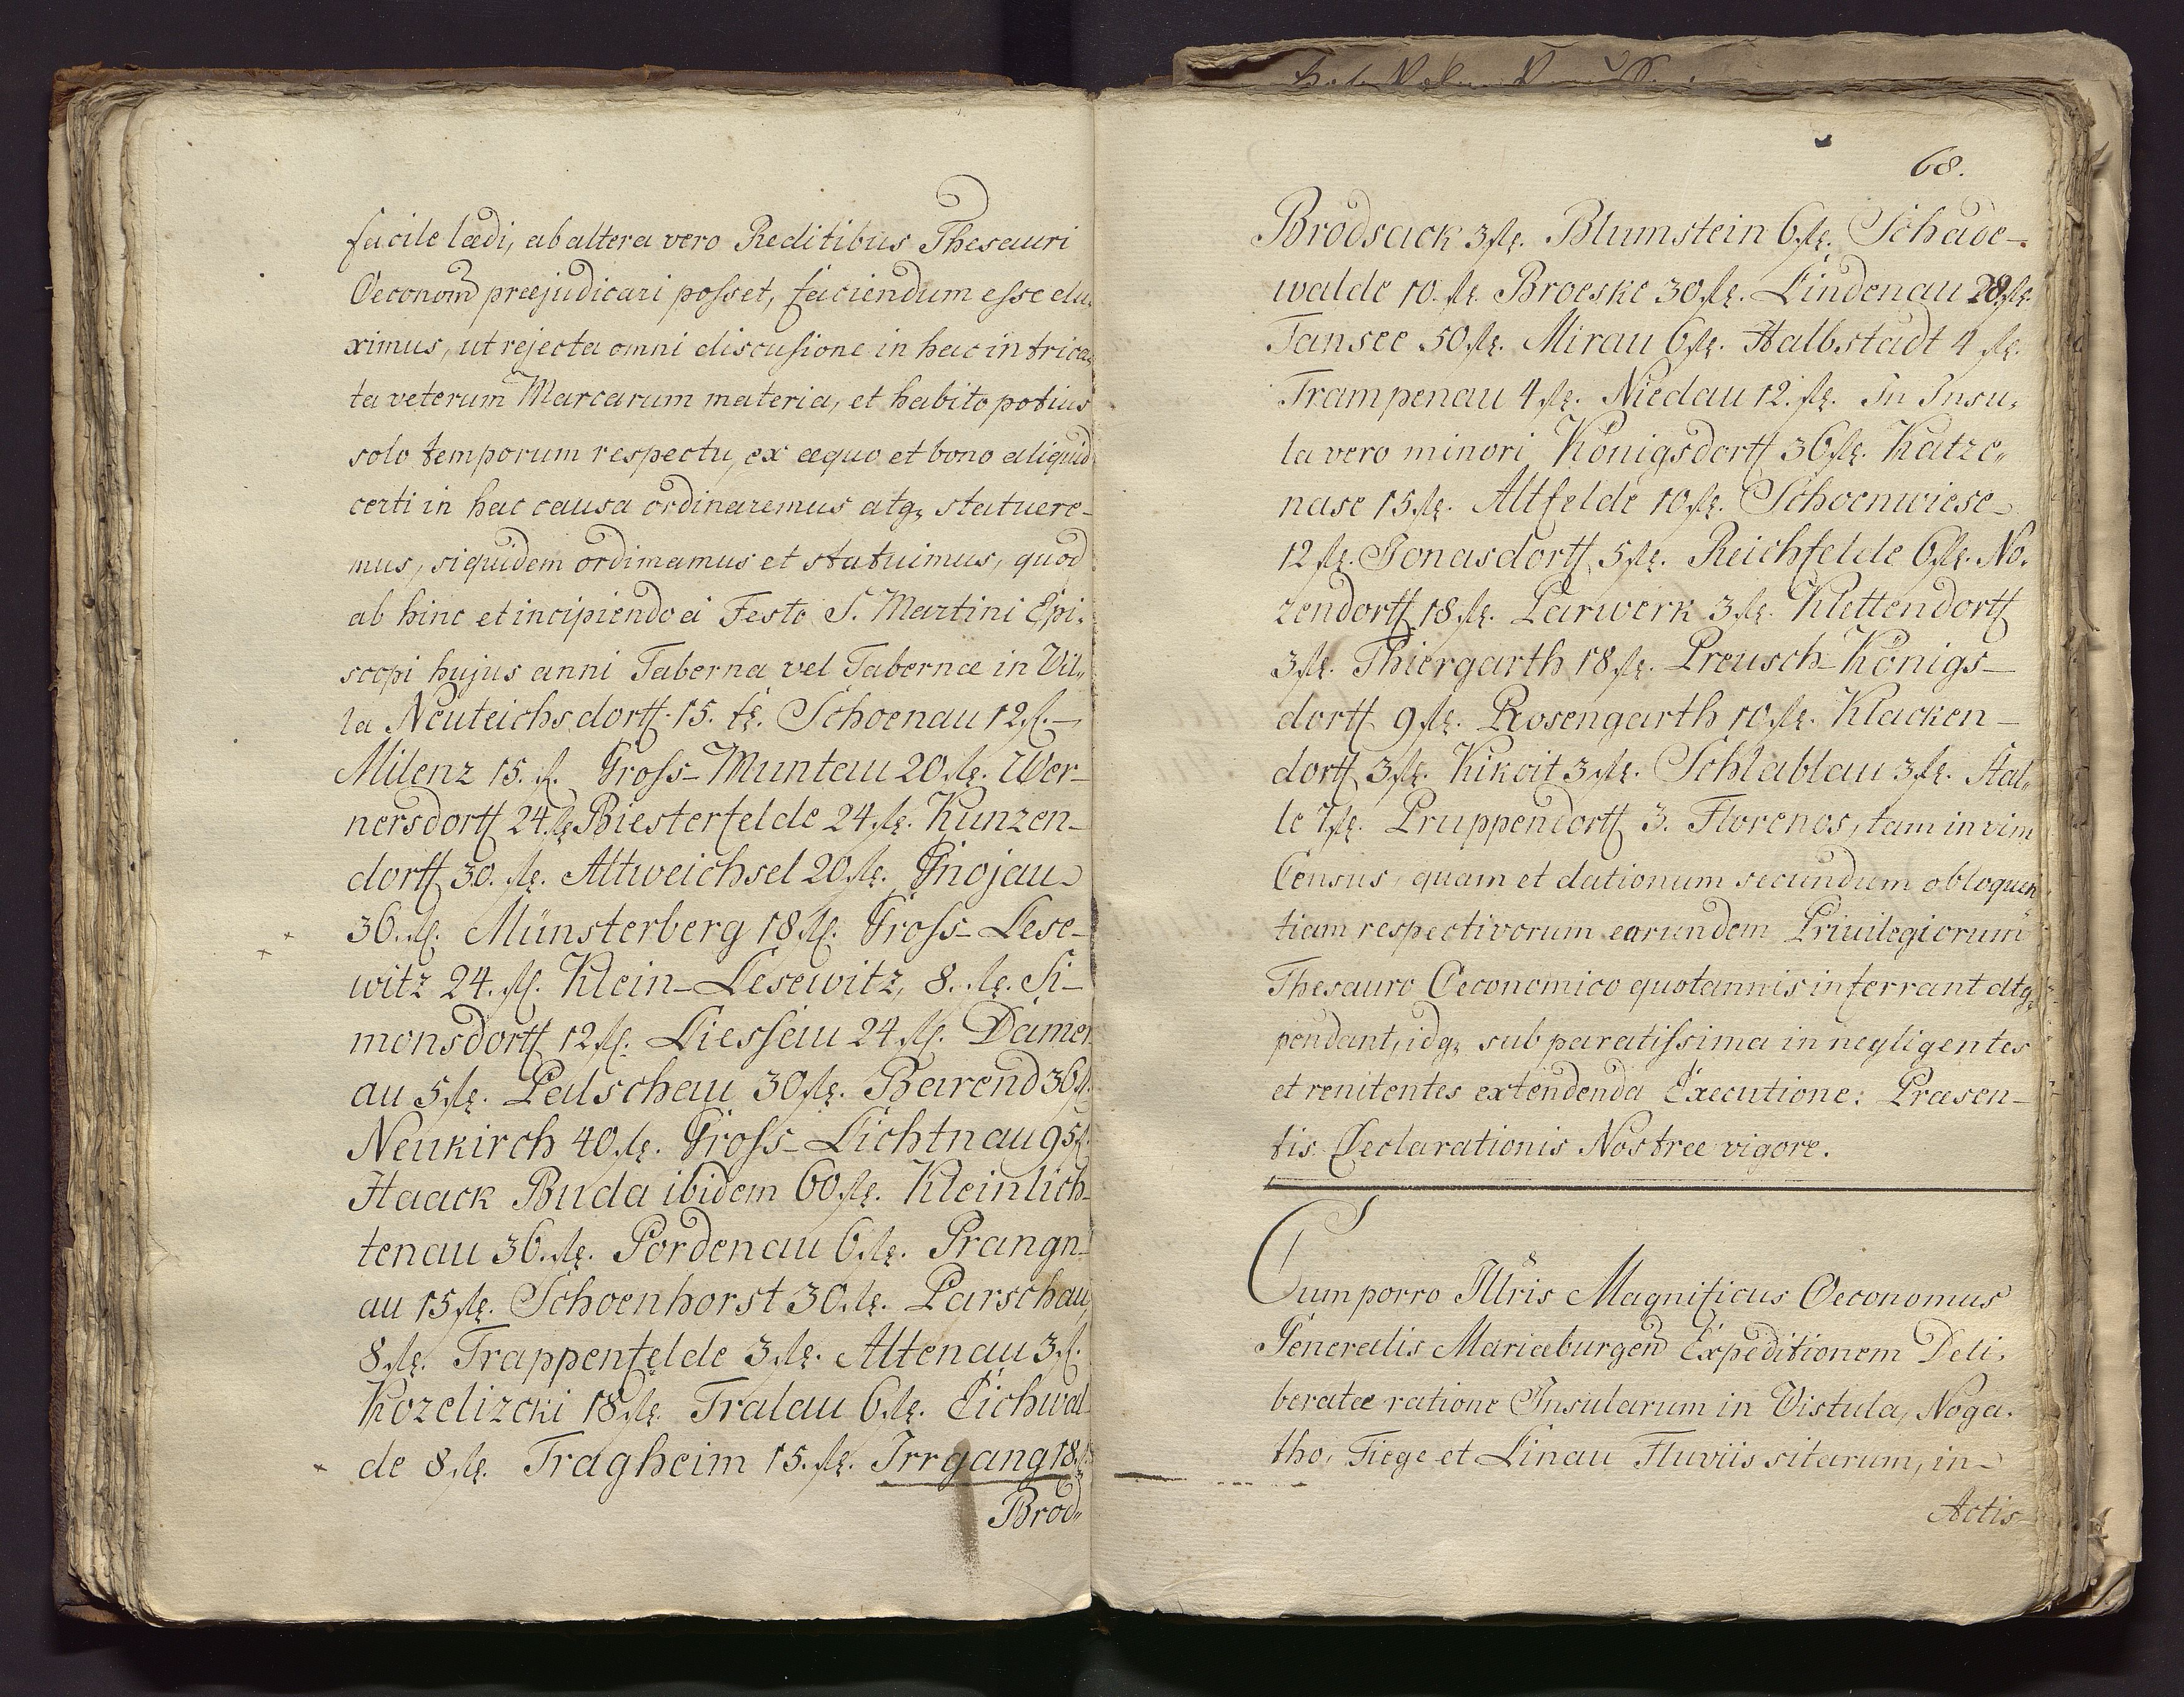 facile lædi, ab altera vero Reditibus Thesauri
Oeconom præjudicari posset, faciendum esse du„
ximus, ut rejecta omni discussione in hac intrica„
ta veterum Marcarum materia, et habito potius
solo temporum respectu, ex æquo et bono aliquid
certi in hac causa ordinaremus atq, statuere-
mus, siquidem ordinamus et statuimus, quod
ab hinc et incipiendo a Festo S. Martini Epi„
scopi hujus anni Taberna vel Tabernæ in Vil„
la Neuteichsdorff 15. fl. Schoenau 12 fl.
Milenz 15. fl. Gross-Muntau 20 fl. Wer-
nersdorff 24. fl. Biesterfelde 24. fl. Kunzen-
dorff 30. fl. Altweichsel 20 fl. Gnojau
36. fl. Münsterberg 18 fl. Gross-Lese-
witz 24. fl. Klein-Lesewitz, 8. fl. Si-
monsdorff 12 fl. Liessau 24 fl. Damer
au 5 fl. Palschau 30 fl. Barend 36 fl.
Neukirch 40 fl. Gross-Lichtnau 95 fl.
Haack Buda ibidem 60 fl. Kleinlich-
tenau 36. fl. Pordenau 6 fl. Prangn-
au 15 fl. Schoenhorst 30 fl. Parschau
8 fl. Trappenfelde 3 fl. Altenau 3 fl.
Kozelizcki 18 fl. Tralau 6 fl. Eichwal-
de 8 fl. Tragheim 15. fl. Irrgang 18. fl.
Brod„
68.
Brodsack 3 fl. Blumstein 6 fl. Schade-
walde 10. fl. Broeske 30 fl. Lindenau 28 fl.
Tansee 50 fl. Mirau 6 fl. Halbstadt 4 fl.
Trampenau 4 fl. Niedau 12. fl. In Insu„
la vero minori Königsdorff 36 fl. Katze„
nase 15 fl. Altfelde 10 fl. Schoenwiese
12 fl. Jonasdorff 5 fl. Reichfelde 6 fl. No„
zendorff 18 fl. Parwerk 3 fl. Klettendorff
3 fl. Thiergarth 18 fl. Preusch-Königs-
dorff 9 fl. Rosengarth 10 fl. Klacken-
dorff 3 fl. Kikoit 3 fl. Schlablau 3 fl. Stal„
le 7 fl. Pruppendorff 3. Florenos, tam in vim
Census, quam et dationum secundum obloquen
tiam respectivorum earundem Privilegiorum
Thesauro Oeconomico quotannis inferrant atq,
pendant, idq, sub paratissima in negligentes
et renitentes extendenda Executione: Præsen-
tis Declarationis Nostræ vigore.
Cum porro Illris Magnificus Oeconomus
Generalis Mariæburgen Expeditionem Deli„
beratæ ratione Insularum in Vistula, Noga„
tho, Tiege et Linau Fluviis sitarum, in
Actis